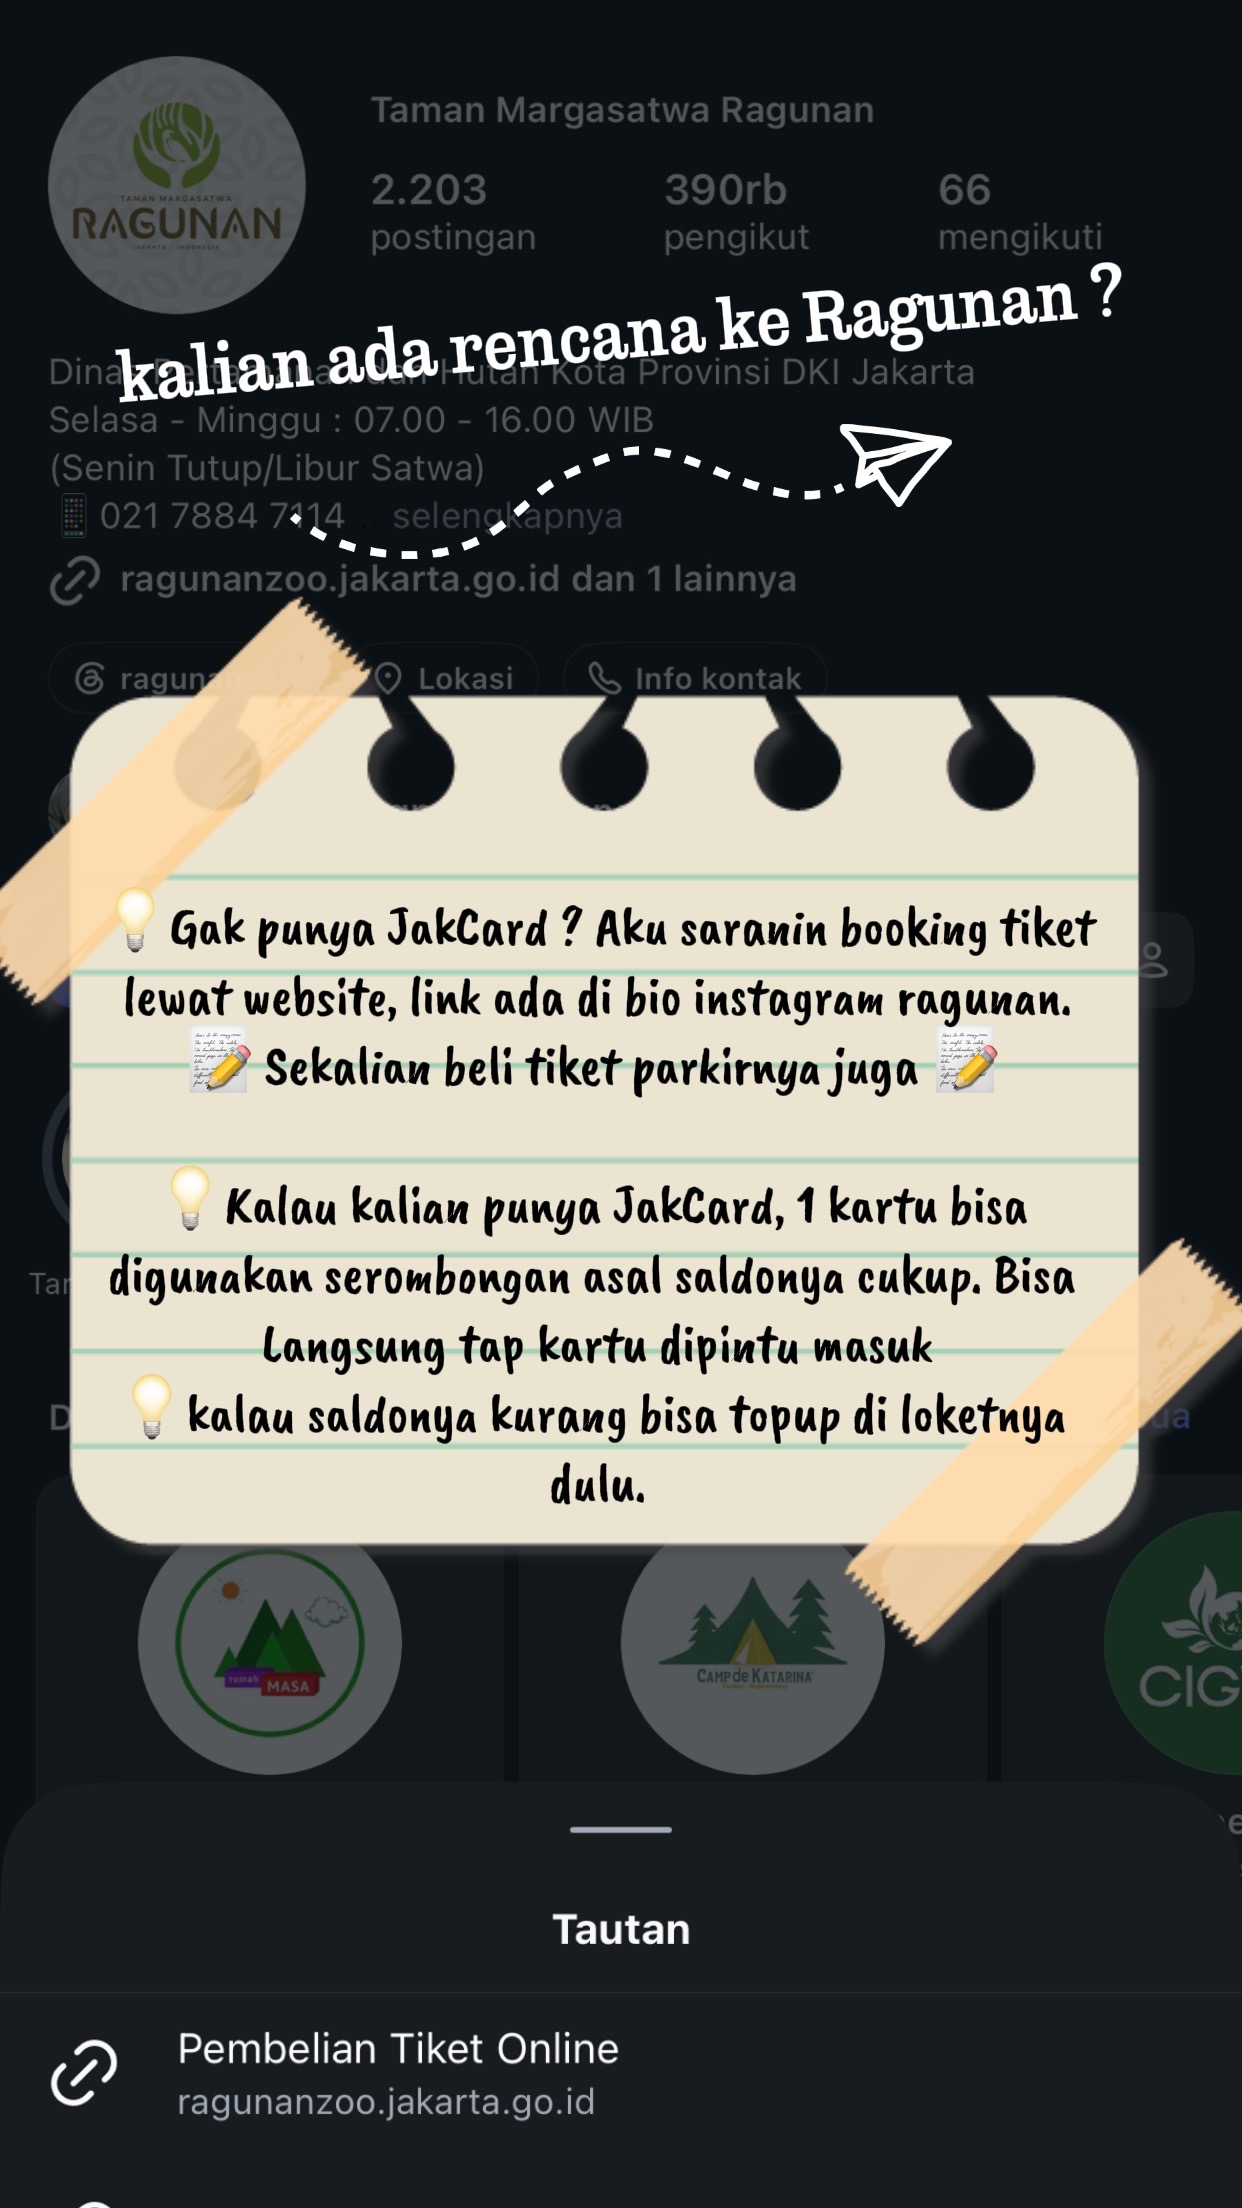 Taman Margasatwa Ragunan
TAMAN MARGASATWA
RAGUNAN
JAKARTA - INDONESIA
2.203 390rb 66
postingan pengikut mengikuti
kalian ada rencana ke Ragunan ?
Hutan Kota Provinsi DKI Jakarta
Selasa - Minggu : 07.00 - 16.00 WIB
(Senin Tutup/Libur Satwa)
📱 021 7884 7114... selengkapnya
ragunanzoo.jakarta.go.id dan 1 lainnya
Lokasi
Info kontak
💡 Gak punya JakCard ? Aku saranin booking tiket
lewat website, link ada di bio instagram ragunan.
📝 Sekalian beli tiket parkirnya juga 📝
💡 Kalau kalian punya JakCard, 1 kartu bisa
digunakan serombongan asal saldonya cukup. Bisa
Langsung tap kartu dipintu masuk
💡 kalau saldonya kurang bisa topup di loketnya
dulu.
rumah
MASA
CAMP de KATARINA
Tautan
Pembelian Tiket Online
ragunanzoo.jakarta.go.id